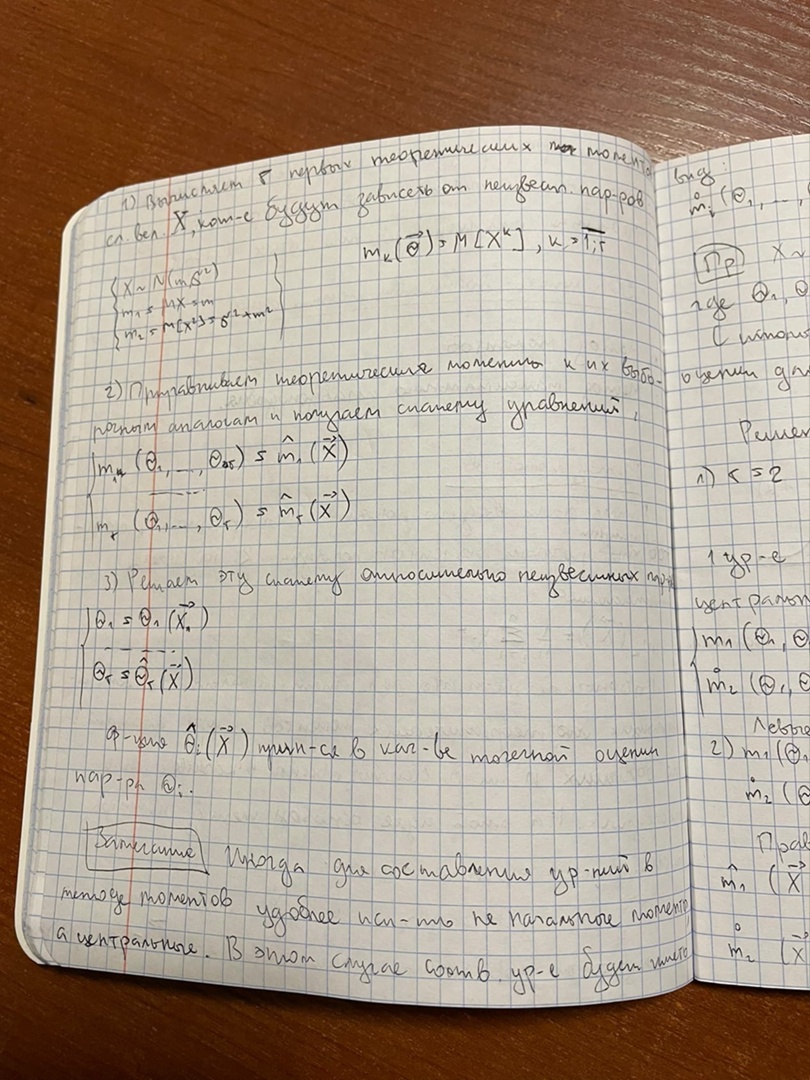 1) Вычисляем r первых теоретических момента
сл. вел. X, кот-е будут зависеть от неизвест. пар-ров
m_k(θ⃗) = M[X^k], k = 1,r
{ X ~ N(m, σ²)
m₁ = MX = m
m₂ = M[X²] = σ² + m² }
2) Приравниваем теоретические моменты к их выбо-
рочным аналогам и получаем систему уравнений:
{ m₁(θ₁, ..., θr) = m̂₁(X⃗)
-----
m_r(θ₁, ..., θr) = m̂_r(X⃗)
3) Решаем эту систему относительно неизвестных пар-
{ θ₁ = θ₁(X⃗)
-----
θr = θ̂r(X⃗)
Ф-ция θ̂ᵢ(X⃗) прин-ся в кач-ве точечной оценки
пар-ра θᵢ.
Замечание Иногда для составления ур-ний в
методе моментов удобнее исп-ть не начальные моменты
а центральные. В этом случае соотв. ур-е будет иметь
вид:
m̊ᵢ(θ₁, ...,
Пр X ~
где θ₁, θ
С
оценки для
Решен
1) r = 2
1 ур-е
центральн
{ m₁(θ₁, θ
m̊₂(θ₁, θ
Левые
2) m₁(θ₁
m̊₂(θ
Прав
m̂₁(X⃗
m̊₂(X⃗